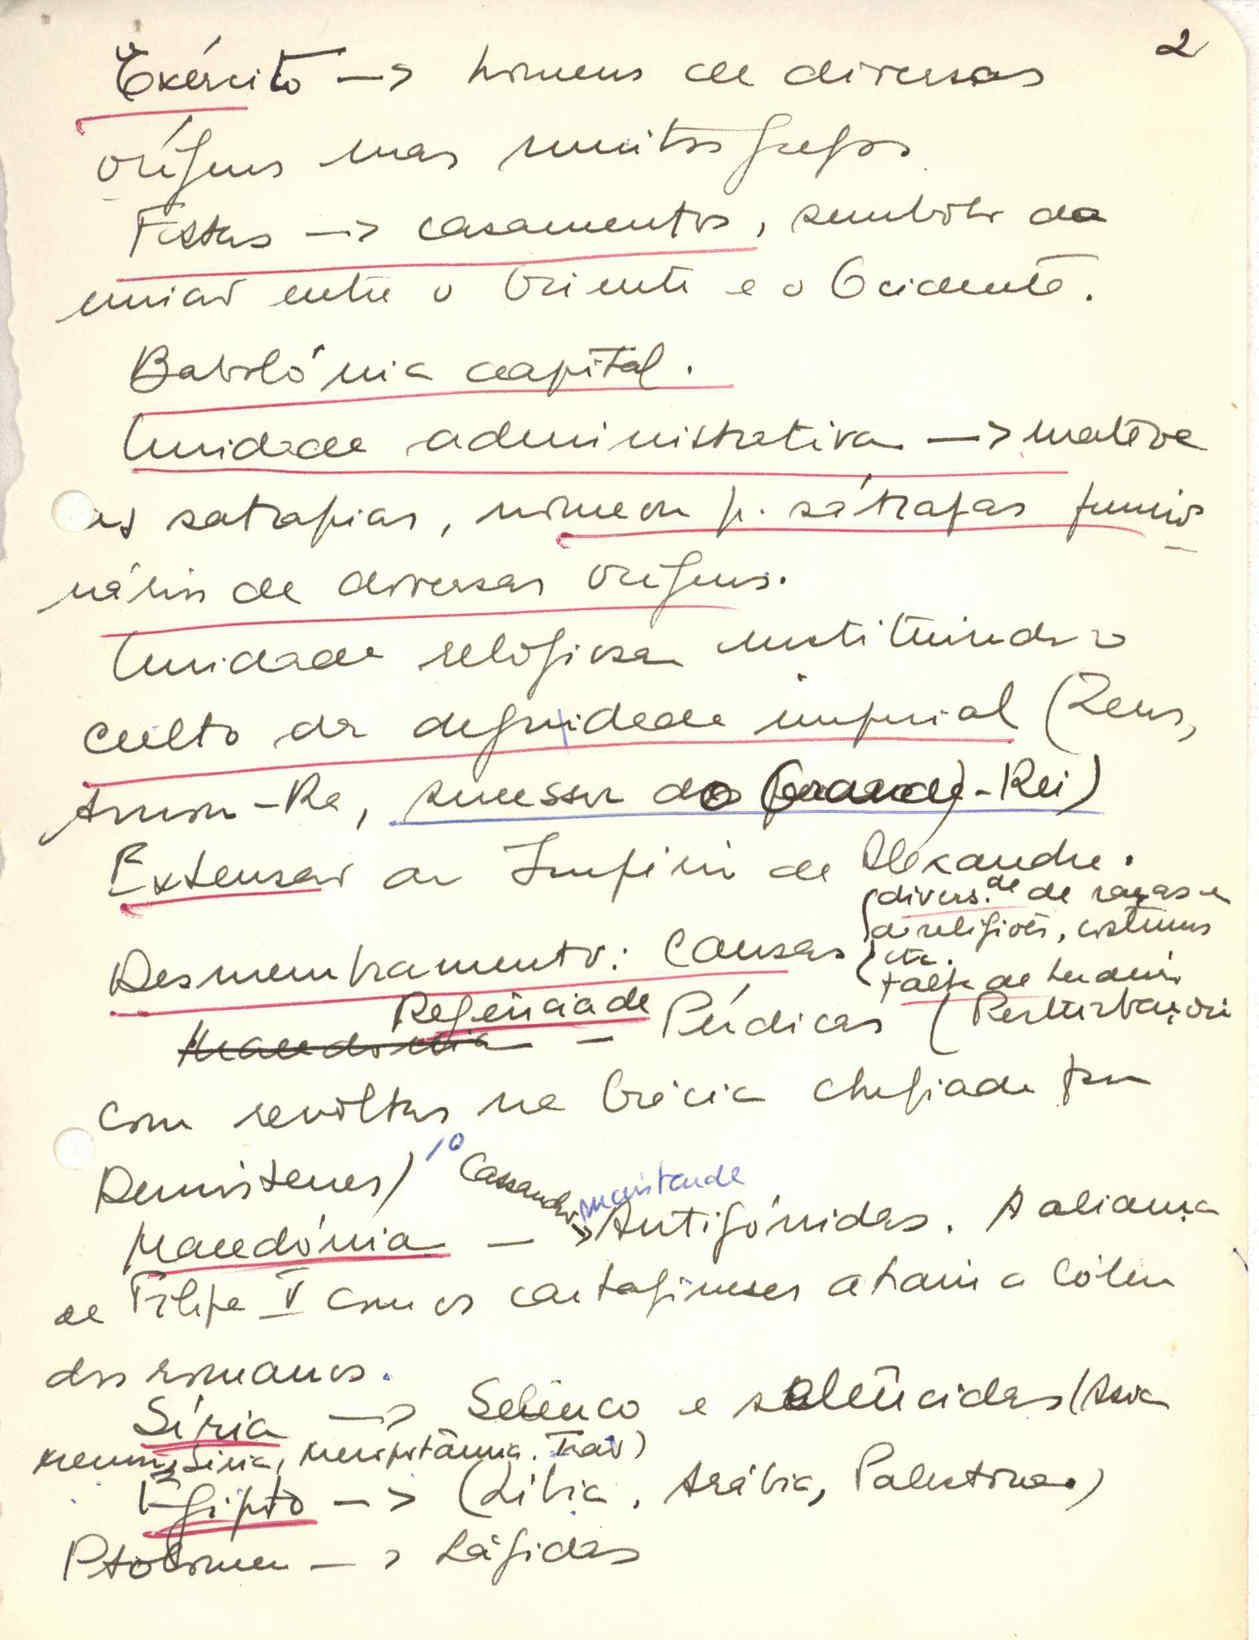 2
Exército -> homens de diversas
origens mas muitos gregos
Festas -> casamentos, símbolo da
união entre o Oriente e o Ocidente.
Babilónia capital.
Unidade administrativa -> mateve
as satrapias, nomeou p. sátrapas funcio
nários de diversas origens.
Unidade religiosa instituindo o
culto da dignidade imperial (Zeus,
Amon-Ra, sucessor do Grande-Rei)
Extensão do Império de Alexandre.
Desmembramento: Causas
divers.de de raças e
de religiões, costumes
etc.
Falta de herdeiro
Macedónia Regência de - Pérdicas (Perturbações
com revoltas na Grécia chefiada por
Demóstenes)
Cassandro
Macedónia - -> Antigónidas. A aliança
de Filipe V com os cartagineses atraiu a cólera
dos romanos.
Síria -> Seleuco e selêucidas (Ásia
Menor, Síria, Mesopotâmia. Irão)
Egipto -> (Líbia, Arábia, Palestina)
Ptolomeu -> Lágidas